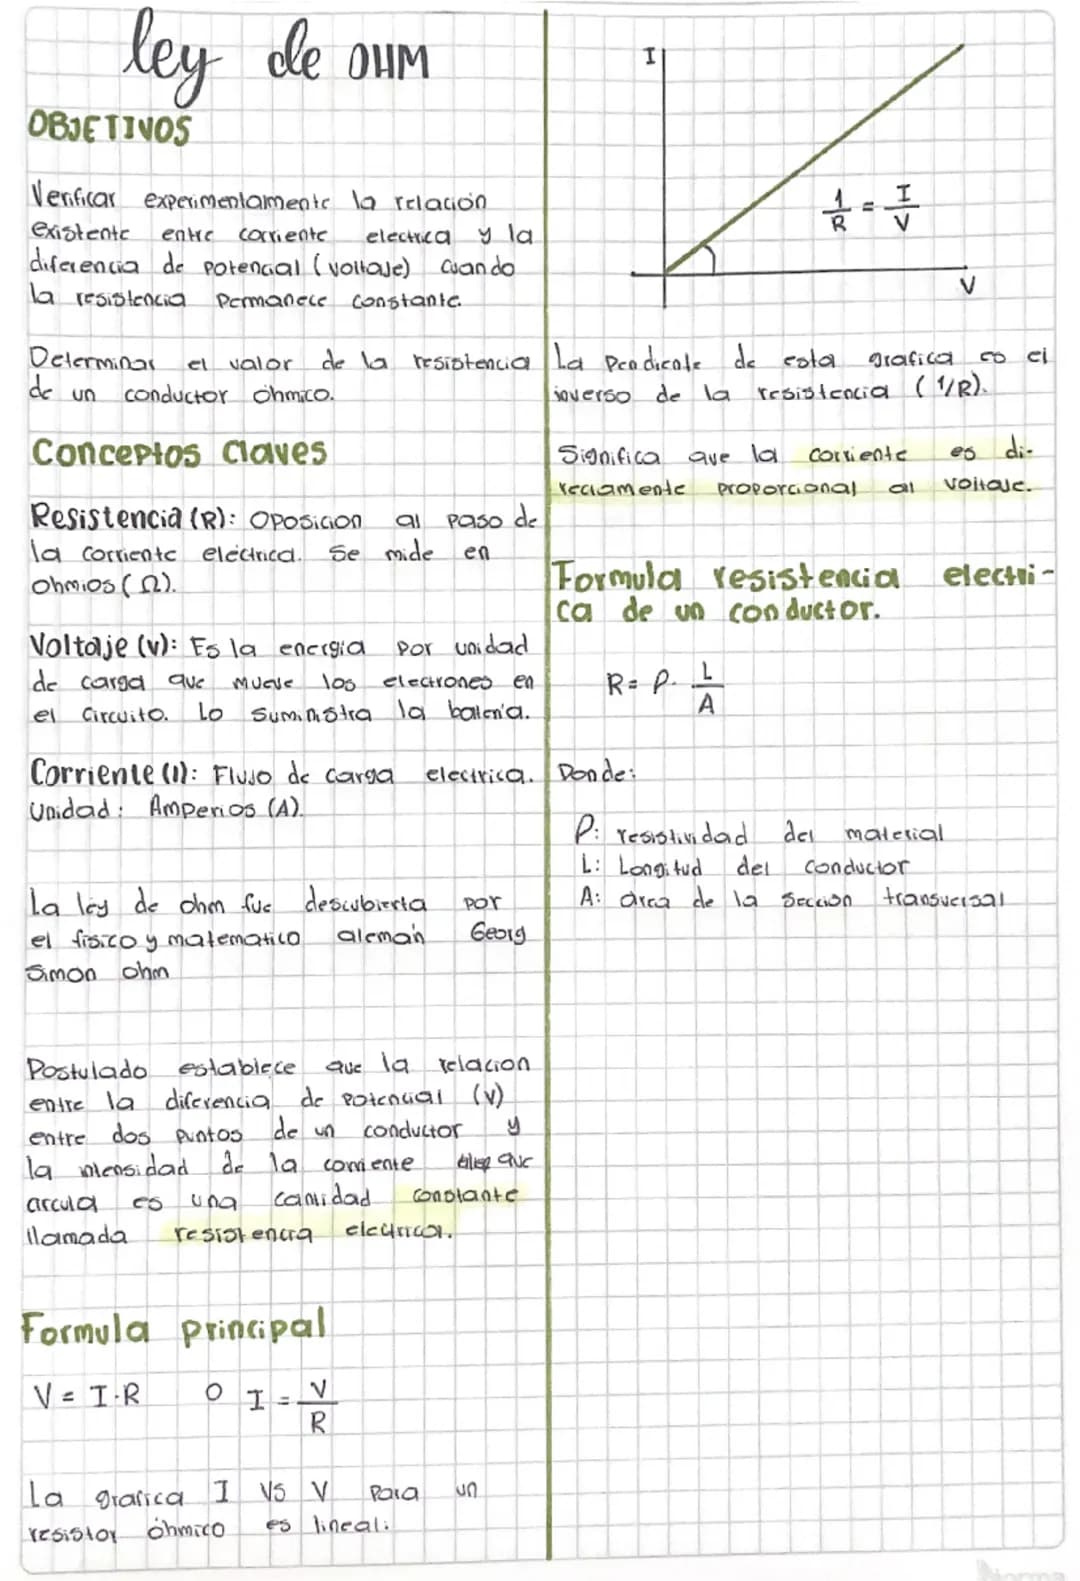 ley de OHM
OBJETIVOS
Verificar experimentalmente la relación
existente entre corriente electrica y la
diferencia de potencial (voltaje) cuando
la resistencia permanece constante.
Determinar el valor de la resistencia
de un conductor óhmico.
Conceptos Claves
Resistencia (R): Oposicion al paso de
la corriente eléctrica. Se mide en
Ohmios (Ω).
Voltaje (v): Es la energia por unidad
de carga que mueve los electrones en
el circuito. Lo suministra la batería.
Corriente (I): Flujo de carga electrica.
Unidad: Amperios (A).
La ley de ohm fue descubierta por
el fisico y matematico alemán Georg
Simon Ohm
Postulado establece que la relacion
entre la diferencia de potencial (v)
entre dos puntos de un conductor y
la intensidad de la corriente que
circula es una cantidad constante
llamada resistencia electrica.
Formula principal
V = I·R o I = V/R
La grafica I vs V para un
resistor óhmico es lineal:
I
1/R = I/V
V
La pendiente de esta grafica es el
inverso de la resistencia (1/R).
Significa que la corriente es di-
rectamente proporcional al voltaje.
Formula resistencia electri-
ca de un conductor.
R = ρ · L/A
Donde:
ρ: resistividad del material
L: Longitud del conductor
A: área de la sección transversal
Norma